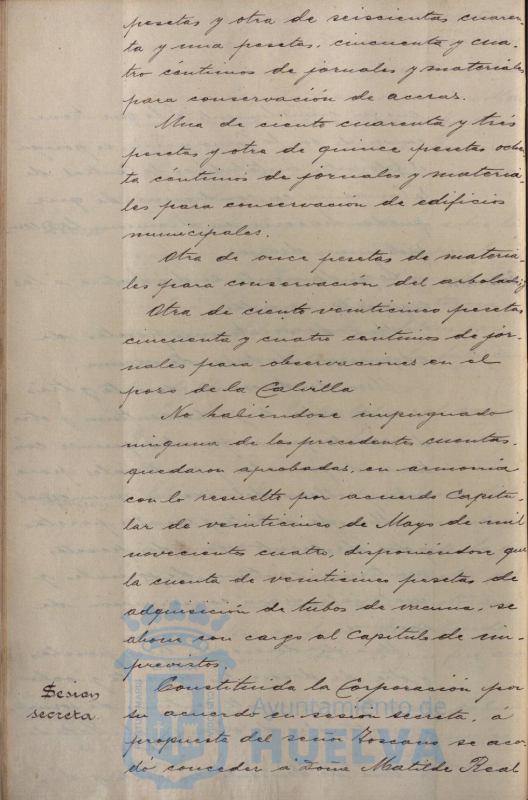 pesetas y otra de seiscientas cuaren-
ta y una pesetas, cincuenta y cua-
tro céntimos de jornales y materiales
para conservación de aceras.
Una de ciento cuarenta y tres
pesetas y otra de quince pesetas ochen-
ta céntimos de jornales y materia-
les para conservación de edificios
municipales.
Otra de once pesetas de materia-
les para conservación del arbolado; y
Otra de ciento veinticinco pesetas
cincuenta y cuatro céntimos de jor-
nales para observaciones en el
pozo de la Calvilla
No habiéndose impugnado
ninguna de las precedentes cuentas,
quedaron aprobadas, en armonía
con lo resuelto por acuerdo Capitu-
lar de veinticinco de Mayo de mil
novecientos cuatro, disponiéndose que
la cuenta de veinticinco pesetas de
adquisición de tubos de vacuna, se
abone con cargo al Capítulo de im-
previstos.
Sesion
secreta
Constituida la Corporación por
su acuerdo en sesión secreta, á
propuesta del señor Toscano se acor-
dó conceder á Doña Matilde Real
Ayuntamiento de
HUELVA